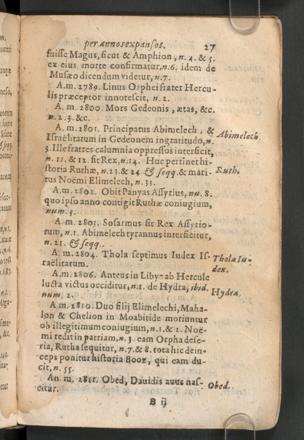 per annos expansos. 27
fuisse Magus, sicut & Amphion, n. 4. & 5.
ex eius morte confirmatur, n.6. idem de
Musæo dicendum videtur, n.7.
A.m. 2789. Linus Orphei frater Hercu-
lis præceptor innotescit, n. 2.
A.m. 2800. Mors Gedeonis, ætas, &c.
n. 2. 3. &c.
A.m. 2801. Principatus Abimelech, &
Israëlitarum in Gedeonem ingratitudo, n.
3. Ille fratres calumnia oppressos interficit,
n. 11. & 12. fit Rex, n.14. Huc pertinet hi-
storia Ruthæ, n.23. & 24 & seqq. & mari-
tus Noëmi Elimelech, n. 31.
A.m. 2802. Obit Panyas Assyrius, nu. 8.
quo ipso anno contigit Ruthæ coniugium,
num. 9.
A.m. 2803. Sosarmus fit Rex Assyrio-
rum, n.1. Abimelech tyrannus interficitur,
n. 21. & seqq.
A.m. 2804. Thola septimus Iudex Is-
raëlitarum.
A.m. 2806. Anteus in Libya ab Hercule
lucta victus occiditur, n.2. de Hydra, ibid.
num. 2.
A.m. 2810. Duo filij Elimelechi, Maha-
lon & Chelion in Moabitide moriuntur
ob illegitimum coniugium, n.1. & 2. Noë-
mi redit in patriam, n.3. eam Orpha dese-
ria, Ruthas equitur, n.7. & 8. tota hic dein-
ceps ponitur historia Booz, qui eam du-
cit, n. 55.
An. m. 2811. Obed, Dauidis auus nas-
citur.
B ij
Abimelech.
Ruth.
Thola Iu-
dex.
Hydra.
Obed.